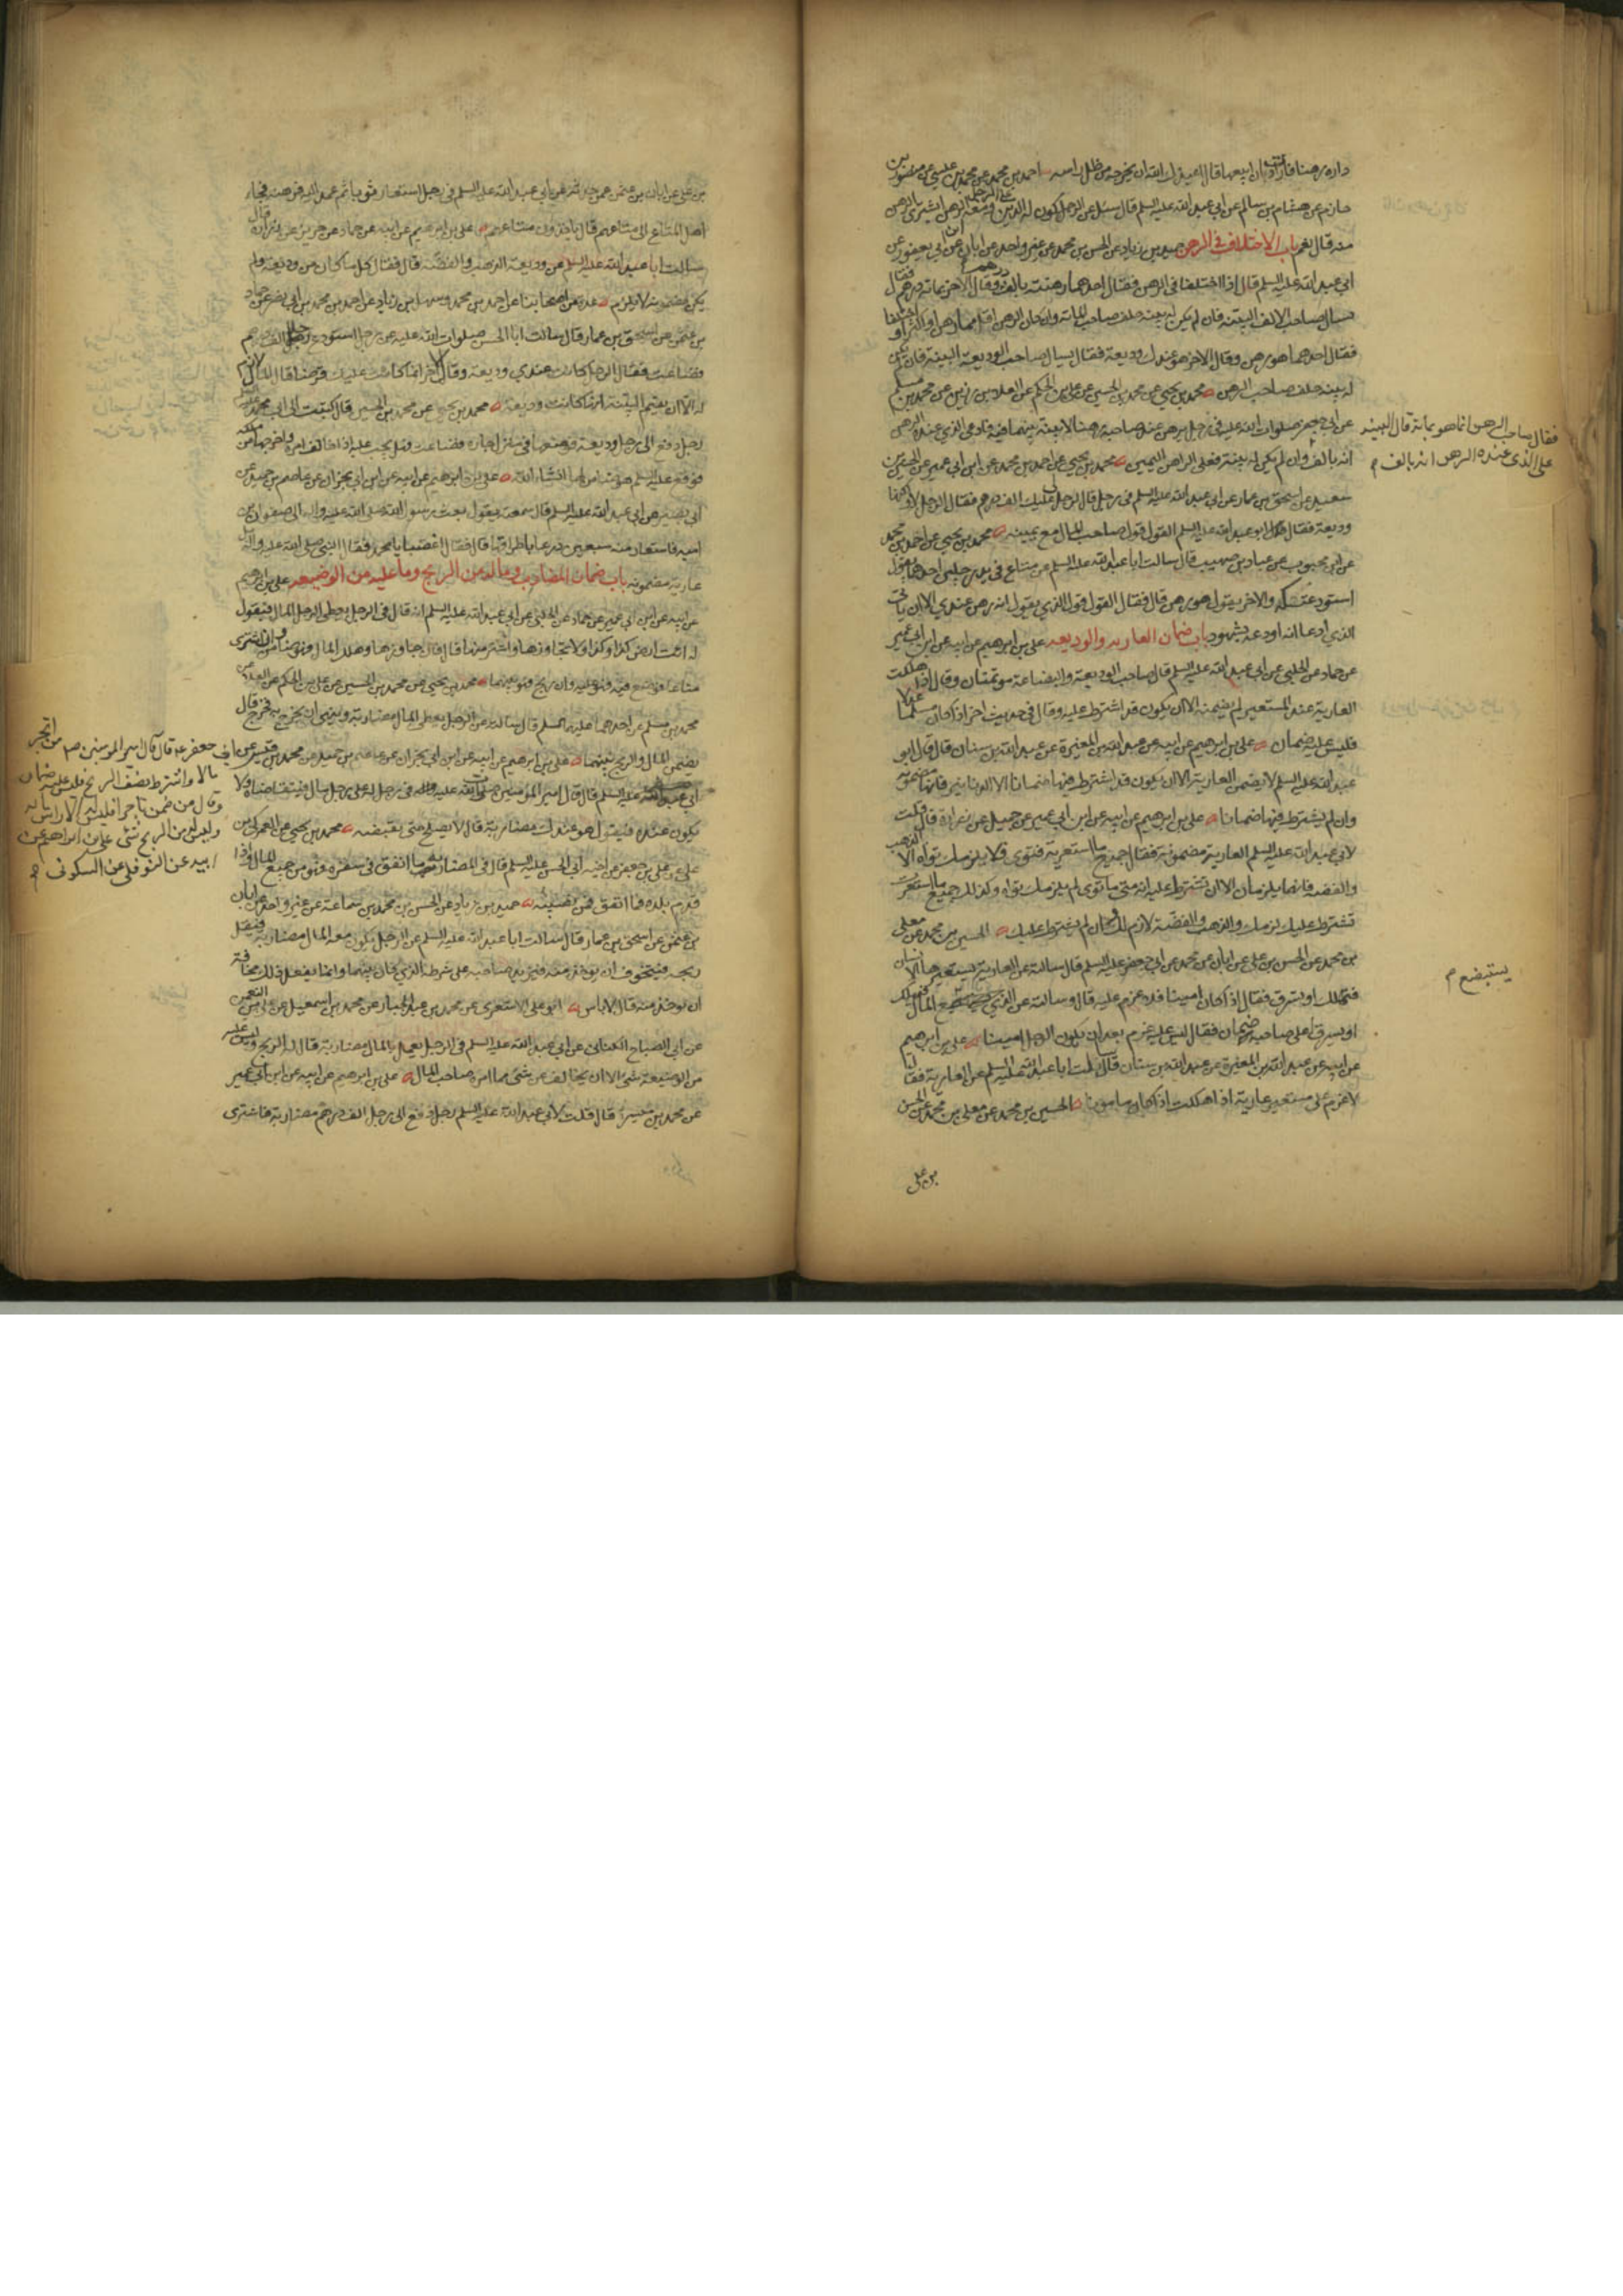 داره رهنا فاراد ان ابيعها قال اعيذك بالله ان يخرجه من ظل راسه احمد بن محمد عن محمد بن عيسى عن منصور بن
حازم عن هشام بن سالم عن ابي عبد الله عليه السلم قال سئل عن الرجل يكون له الدين على الرجل ومعه الرهن ايشتري الرهن
منه قال نعم باب الاختلاف في الرهن حميد بن زياد عن الحسن بن محمد عن غير واحد عن ابان عن ابن ابي يعفور عن
ابي عبد الله عليه السلم قال اذا اختلفا في الرهن فقال احدهما رهنته بالف درهم وقال الاخر بمائة درهم فقال
يسال صاحب الالف البينة فان لم يكن له بينة حلف صاحب المائة وان كان الرهن اقل مما رهن او اكثر او اختلفا
فقال احدهما هو رهن وقال الاخر هو عندك وديعة فقال يسال صاحب الوديعة البينة فان لم يكن
له بينة حلف صاحب الرهن محمد بن يحيى عن محمد بن الحسين عن علي بن الحكم عن العلا بن رزين عن محمد بن مسلم
عن ابي جعفر صلوات الله عليه في رجل يرهن عند صاحبه رهنا لا بينة بينهما فيه فادعى الذي عنده الرهن
فقال صاحب الرهن انما هو بمائة قال البينة
على الذي عنده الرهن انه بالف م
انه بالف وان لم يكن له بينة فعلى الراهن اليمين محمد بن يحيى عن احمد بن محمد عن ابن ابي عمير عن الحسين بن
سعيد عن اسحق بن عمار عن ابي عبد الله عليه السلم في رجل قال لرجل لي عليك الف درهم فقال الرجل لا ولكنها
وديعة فقال ابو عبد الله عليه السلم القول قول صاحب المال مع يمينه محمد بن يحيى عن احمد بن محمد
عن ابن محبوب عن عباد بن صهيب قال سالت ابا عبد الله عليه السلم عن متاع في يد رجلين احدهما يقول
استودعتكه والاخر يقول هو رهن قال فقال القول قول الذي يقول انه رهن عندي الا ان ياتي
الذي ادعا انه اودعه بشهود باب ضمان العارية والوديعة علي بن ابرهيم عن ابيه عن ابن ابي عمير
عن حماد عن الحلبي عن ابي عبد الله عليه السلم قال صاحب الوديعة والبضاعة موتمنان وقال اذا هلكت
العارية عند المستعير لم يضمنه الا ان يكون قد اشترط عليه وقال في حديث اخر اذا كان مسلما عدلا
فليس عليه ضمان علي بن ابرهيم عن ابيه عن عبد الله بن المغيرة عن عبد الله بن سنان قال قال ابو
عبد الله عليه السلم لا تضمن العارية الا ان يكون قد اشترط فيها ضمانا الا الدنانير فانها مضمونة
وان لم يشترط فيها ضمانا علي بن ابرهيم عن ابيه عن ابن ابي عمير عن جميل عن زرارة قال قلت
لابي عبد الله عليه السلم العارية مضمونة فقال جميع ما استعرته فتوى فلا يلزمك تواه الا الذهب
والفضة فانهما يلزمان الا ان تشترط عليه انه متى ما توى لم يلزمك تواه وكذلك جميع ما استعرت
فاشترط عليك لزمك والذهب والفضة لازم لك وان لم يشترط عليك الحسين بن محمد عن معلى
بن محمد عن الحسن بن علي عن ابان عن محمد عن ابي جعفر عليه السلم قال سالته عن العارية يستعيرها الانسان
فتهلك او تسرق فقال اذا كان امينا فلا غرم عليه قال وسالته عن الذي يستبضع المال فيهلك
يستبضع م
او يسرق اعلى صاحبه ضمان فقال ليس عليه غرم بعد ان يكون الرجل امينا علي بن ابرهيم
عن ابيه عن عبد الله بن المغيرة عن عبد الله بن سنان قال سالت ابا عبد الله عليه السلم عن العارية فقال
لا غرم على مستعير عارية اذا هلكت اذا كان مامونا الحسين بن محمد عن معلى بن محمد عن الحسن
بن علي
بن علي عن ابان بن عثمن عمن حدثه عن ابي عبد الله عليه السلم في رجل استعار ثوبا ثم عمد اليه فرهنه فجاء
اهل المتاع الى متاعهم قال ياخذون متاعهم علي بن ابرهيم عن ابيه عن حماد عن حريز عن زرارة قال
سالت ابا عبد الله عليه السلم عن وديعة الذهب والفضة قال فقال كل ما كان من وديعة ولم
يكن مضمونة لا يلزم عدة من اصحابنا عن احمد بن محمد وسهل بن زياد عن احمد بن محمد بن ابي نصر عن حماد
بن عثمن عن اسحق بن عمار قال سالت ابا الحسن صلوات الله عليه عن رجل استودع رجلا الف درهم
فضاعت فقال الرجل كانت عندي وديعة وقال الاخر انما كانت عليك قرضا قال المال لازم
له الا ان يقيم البينة انها كانت وديعة محمد بن يحيى عن محمد بن الحسين قال كتبت الى ابي محمد عليه السلم
رجل دفع الى رجل وديعة فوضعها في منزل جاره فضاعت فهل يجب عليه اذا خالف امره واخرجها من ملكه
فوقع عليه السلم هو ضامن لها ان شاء الله علي بن ابرهيم عن ابيه عن ابن ابي نجران عن عاصم بن حميد عن
ابي بصير عن ابي عبد الله عليه السلم قال سمعته يقول بعث رسول الله صلى الله عليه واله الى صفوان بن
امية فاستعار منه سبعين درعا باطراقها قال فقال اغصبا يا محمد فقال النبي صلى الله عليه واله بل
عارية مضمونة باب ضمان المضارب وما له من الربح وما عليه من الوضيعة علي بن ابرهيم
عن ابيه عن ابن ابي عمير عن حماد عن الحلبي عن ابي عبد الله عليه السلم انه قال في الرجل يعطي الرجل المال فيقول
له ائت ارض كذا وكذا ولا تجاوزها واشتر منها قال فان جاوزها وهلك المال فهو ضامن وان اشترى
متاعا فوضع فيه فهو عليه وان ربح فهو بينهما محمد بن يحيى عن محمد بن الحسين عن علي بن الحكم عن العلا عن
محمد بن مسلم عن احدهما عليهما السلم قال سالته عن الرجل يعطي المال مضاربة وينهى ان يخرج به فخرج قال
يضمن المال والربح بينهما علي بن ابرهيم عن ابيه عن ابن ابي نجران عن عاصم بن حميد عن محمد بن قيس عن ابي جعفر ع قال قال امير المومنين ص من اتجر
مالا واشترط نصف الربح فليس عليه ضمان
وقال من ضمن تاجرا فليس له الا راس ماله
وليس له من الربح شئ علي بن ابراهيم عن
ابيه عن النوفلي عن السكوني م
ابي عبد الله عليه السلم قال قال امير المومنين صلوات الله عليه في رجل له على رجل مال فيتقاضاه ولا
يكون عنده فيقول هو عندك مضاربة قال لا يصلح حتى تقبضه محمد بن يحيى عن العمركي بن
علي عن علي بن جعفر عن اخيه ابي الحسن عليه السلم قال في المضارب ما انفق في سفره فهو من جميع المال واذا
قدم بلده فما انفق فمن نصيبه حميد بن زياد عن الحسن بن محمد بن سماعة عن غير واحد عن ابان
بن عثمن عن اسحق بن عمار قال سالت ابا عبد الله عليه السلم عن الرجل يكون معه المال مضاربة فيقل
ربحه فيتخوف ان يوخذ منه فيزيد صاحبه على شرطه الذي كان بينهما وانما يفعل ذلك مخافة
ان يوخذ منه قال لا باس ابو علي الاشعري عن محمد بن عبد الجبار عن محمد بن اسمعيل عن علي بن النعمن
عن ابي الصباح الكناني عن ابي عبد الله عليه السلم في الرجل يعمل بالمال مضاربة قال له الربح وليس عليه
من الوضيعة شئ الا ان يخالف عن شئ مما امر صاحب المال علي بن ابرهيم عن ابيه عن ابن ابي عمير
عن محمد بن ميسر قال قلت لابي عبد الله عليه السلم رجل دفع الى رجل الف درهم مضاربة فاشترى